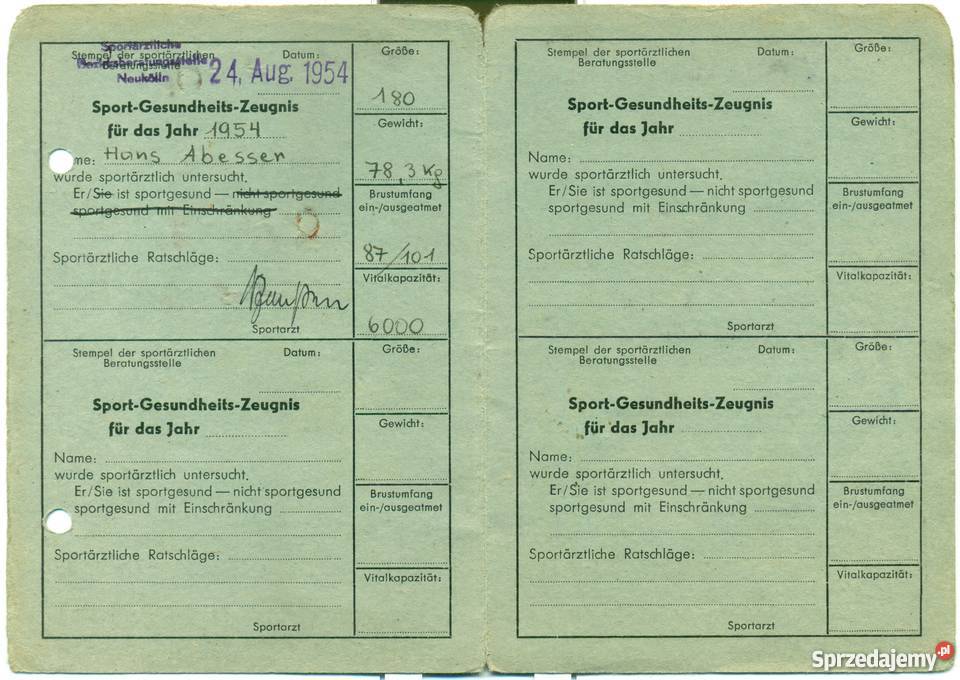 Sportärztliche
Bezirksberatungsstelle
Neukölln
Stempel der sportärztlichen
Beratungsstelle
Datum:
24. Aug. 1954
Sport-Gesundheits-Zeugnis
für das Jahr 1954
me: Hans Abesser
wurde sportärztlich untersucht.
Er/Sie ist sportgesund — nicht sportgesund
sportgesund mit Einschränkung
Sportärztliche Ratschläge:
Sportarzt
Größe:
180
Gewicht:
78,3 Kg
Brustumfang
ein-/ausgeatmet
87/101
Vitalkapazität:
6000
Stempel der sportärztlichen
Beratungsstelle
Datum:
Sport-Gesundheits-Zeugnis
für das Jahr
Name:
wurde sportärztlich untersucht.
Er/Sie ist sportgesund — nicht sportgesund
sportgesund mit Einschränkung
Sportärztliche Ratschläge:
Sportarzt
Größe:
Gewicht:
Brustumfang
ein-/ausgeatmet
Vitalkapazität:
Stempel der sportärztlichen
Beratungsstelle
Datum:
Sport-Gesundheits-Zeugnis
für das Jahr
Name:
wurde sportärztlich untersucht.
Er/Sie ist sportgesund — nicht sportgesund
sportgesund mit Einschränkung
Sportärztliche Ratschläge:
Sportarzt
Größe:
Gewicht:
Brustumfang
ein-/ausgeatmet
Vitalkapazität:
Stempel der sportärztlichen
Beratungsstelle
Datum:
Sport-Gesundheits-Zeugnis
für das Jahr
Name:
wurde sportärztlich untersucht.
Er/Sie ist sportgesund — nicht sportgesund
sportgesund mit Einschränkung
Sportärztliche Ratschläge:
Sportarzt
Größe:
Gewicht:
Brustumfang
ein-/ausgeatmet
Vitalkapazität:
Sprzedajemy.pl